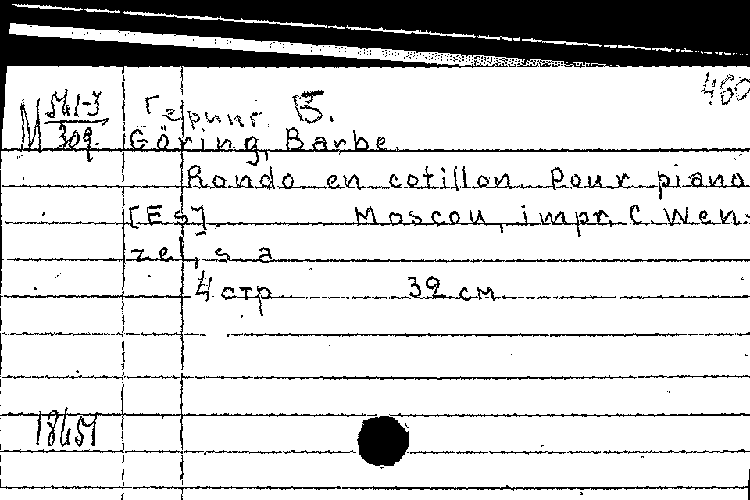 460
М 561-3/309 Геринг Б.
Göring, Barbe.
Rondo en cotillon. Pour piano
[Es] Moscou, impr. C. Wen-
zel, s. a.
4 стр. 32 см.
18451